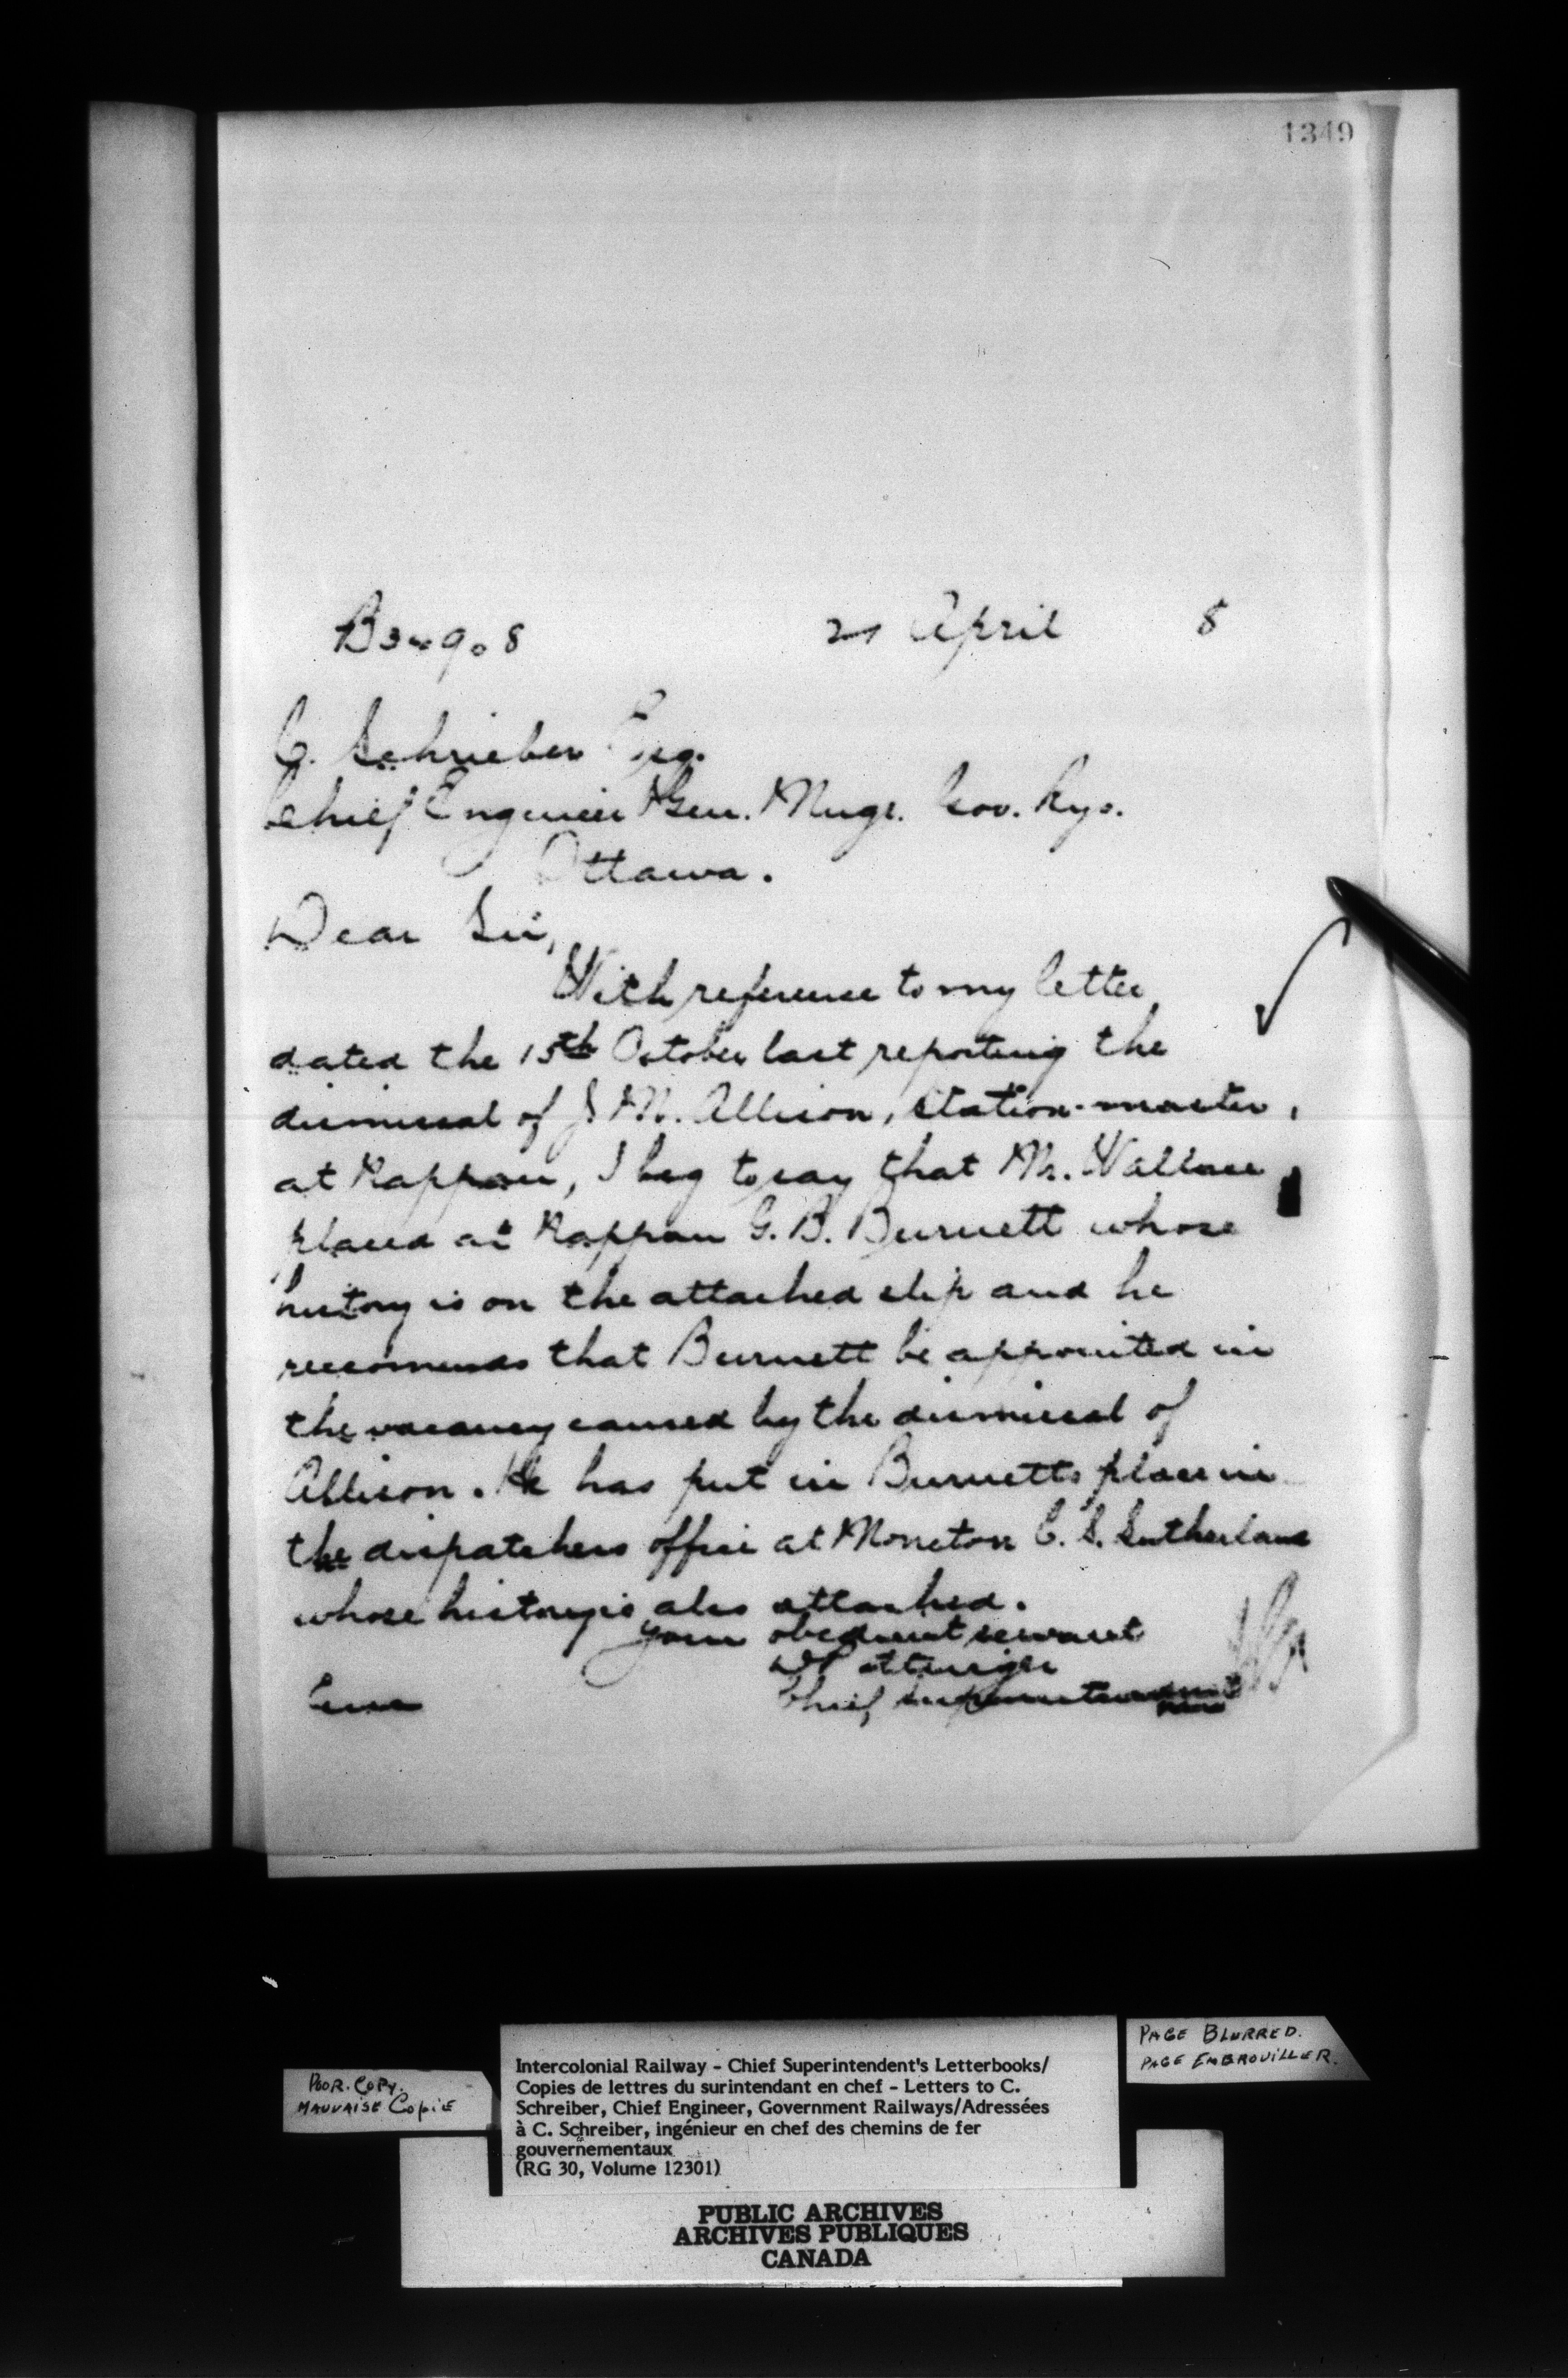 1349
B34908 21 April 8
C. Schrieber Esq.
Chief Engineer & Gen. Mngr. Gov. Rys.
Ottawa.
Dear Sir,
With reference to my letter
dated the 15th October last reporting the
dismissal of J. M. Allison, Station-master,
at Nappan, I beg to say that Mr. Wallace
placed at Nappan G. B. Burnett whose
history is on the attached slip and he
reccomends that Burnett be appointed in
the vacancy caused by the dismissal of
Allison. He has put in Burnetts place in
the dispatchers office at Moncton C. S. Sutherland
whose history is also attached.
Your obedient servant
D Pottinger
Chief Superintendent
POOR COPY.
MAUVAISE COPIE
Intercolonial Railway - Chief Superintendent's Letterbooks/
Copies de lettres du surintendant en chef - Letters to C.
Schreiber, Chief Engineer, Government Railways/Adressées
à C. Schreiber, ingénieur en chef des chemins de fer
gouvernementaux
(RG 30, Volume 12301)
PAGE BLURRED.
PAGE EMBROUILLER.
PUBLIC ARCHIVES
ARCHIVES PUBLIQUES
CANADA